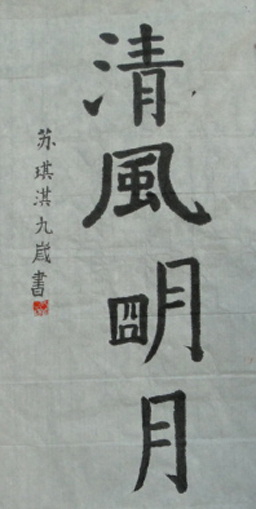 清風明月
苏琪淇九歲書